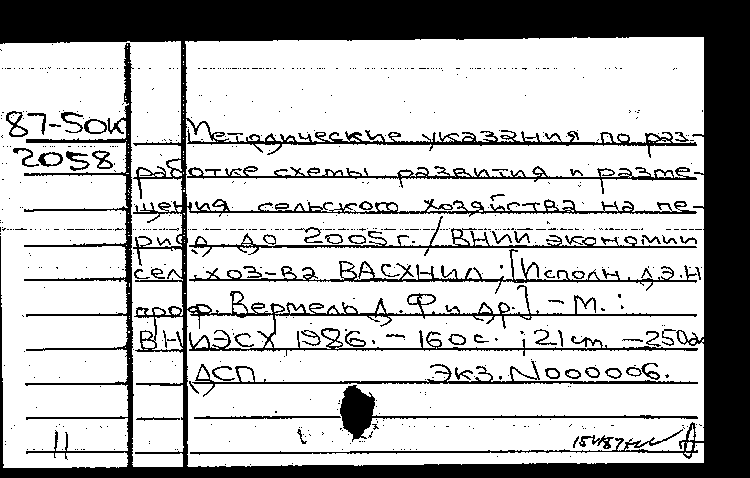 87-50к Методические указания по раз-
2058 работке схемы развития и разме-
щения сельского хозяйства на пе-
риод до 2005 г. / ВНИИ экономии
сел. хоз-ва ВАСХНИЛ ; [Исполн. д.э.н
проф. Вермель Д. Ф. и др.]. - М. :
ВНИЭСХ 1986. - 160 с. ; 21 см. - 250э
ДСП. Экз. N000006.
11